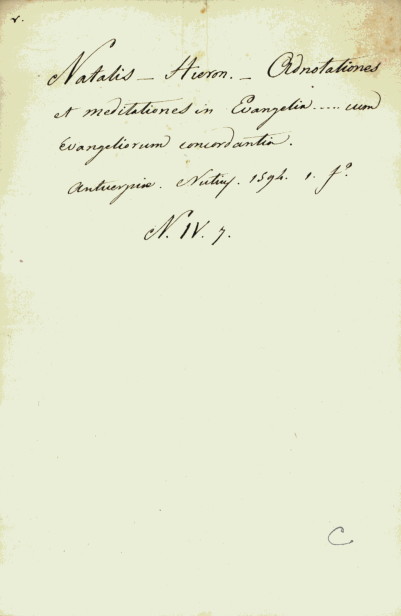 r.
Natalis – Hieron. – Adnotationes
et meditationes in Evangelia..... cum
Evangeliorum concordantia.
Antverpiæ. Nutij. 1594. 1. fº.
N. IV. 7.
C